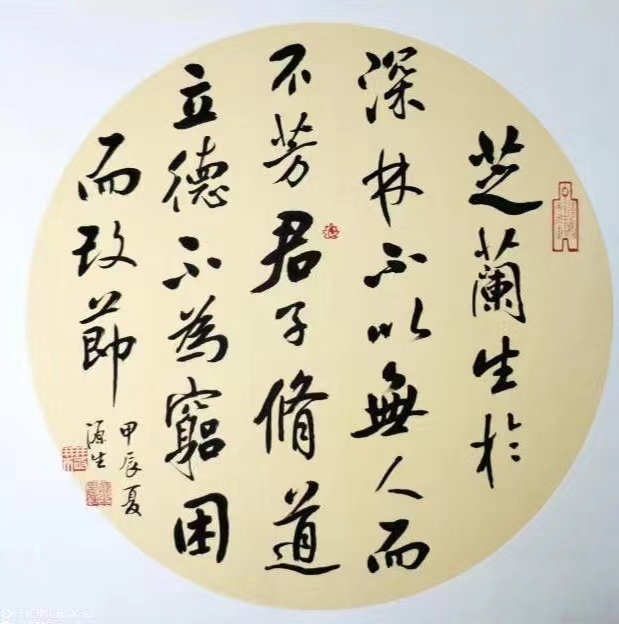 芝蘭生於
深林不以無人而
不芳君子脩道
立德不為窮困
而改節
甲辰夏
源生